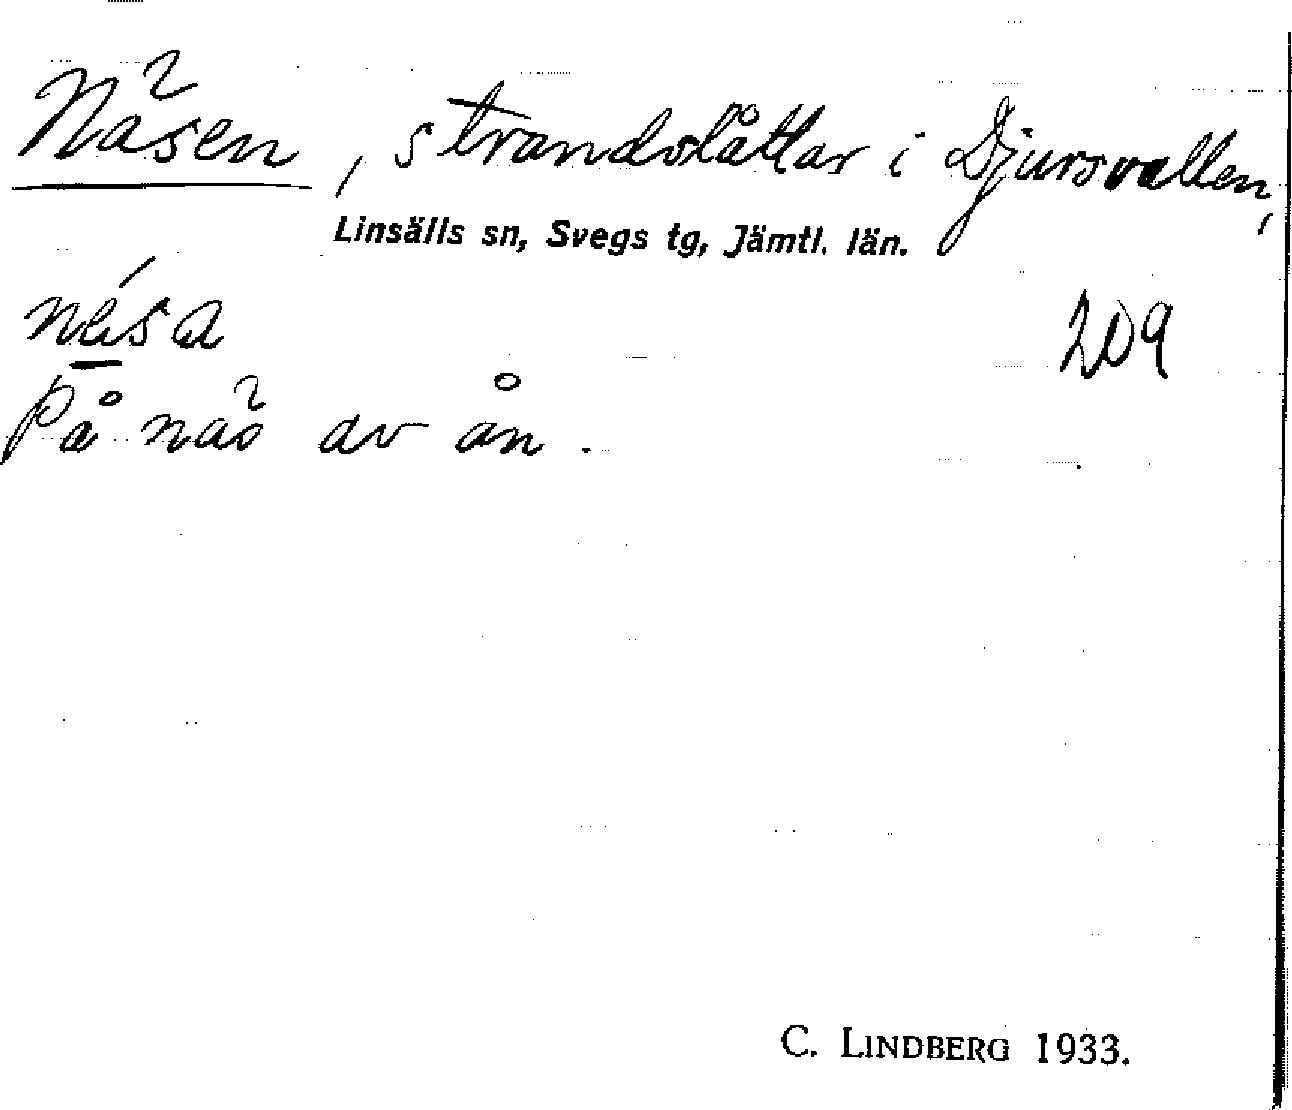 Näsen, strandslåttar i Djursvallen,
Linsälls sn, Svegs tg, Jämtl. län.
209
På näs av ån.
C. LINDBERG 1933.